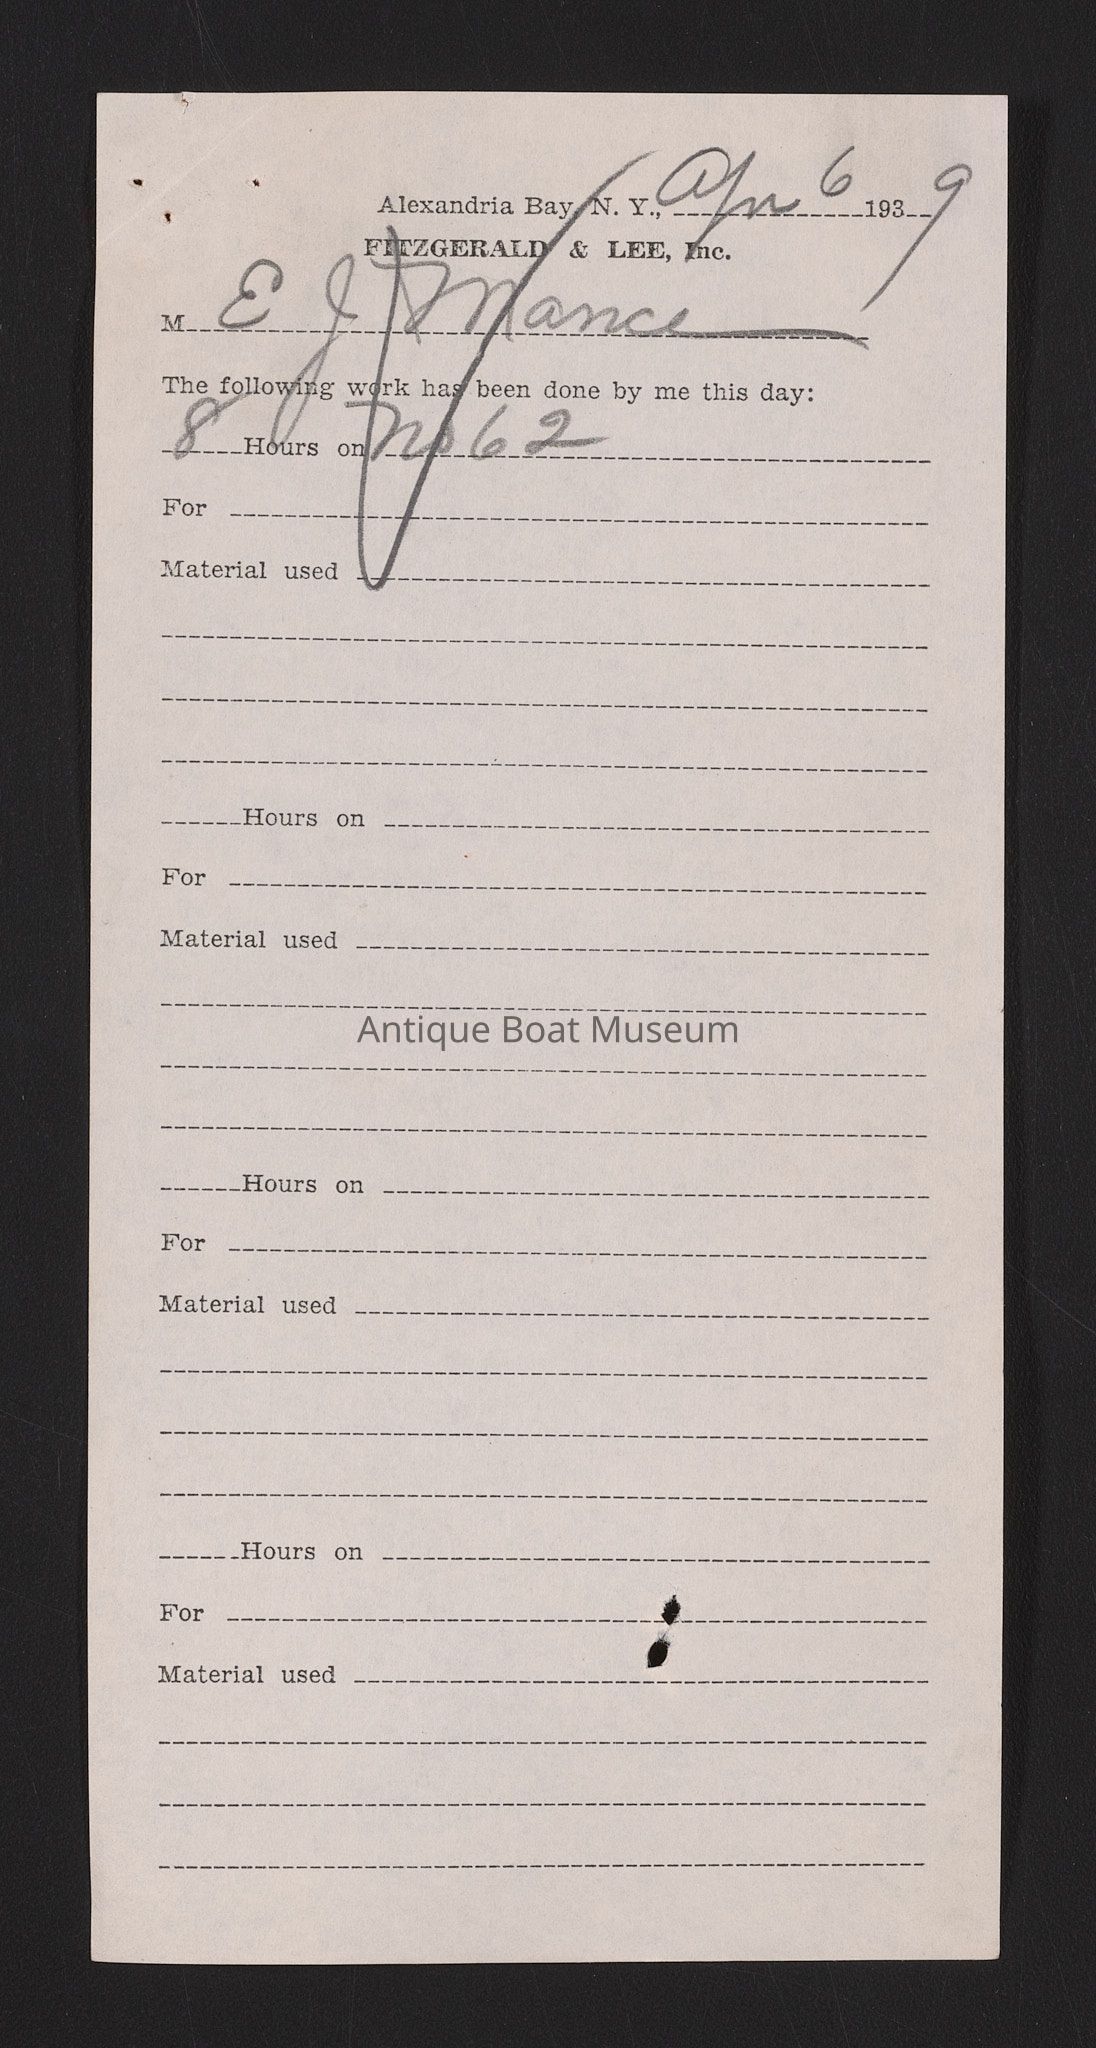 Alexandria Bay, N. Y., Apr 6 1939
FITZGERALD & LEE, Inc.
M E J Mance
The following work has been done by me this day:
8 Hours on No 62
For
Material used
Hours on
For
Material used
Antique Boat Museum
Hours on
For
Material used
Hours on
For
Material used